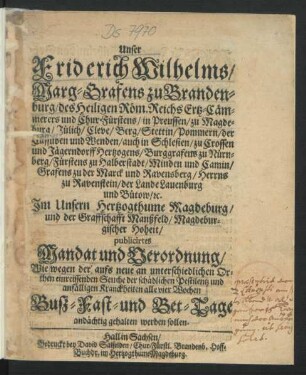 Ds 7970
Unser
Friderich Wilhelms/
Marg-Grafens zu Branden-
burg/des Heiligen Röm. Reichs Ertz-Cäm-
merers und Chur-Fürstens/in Preussen/zu Magde-
burg/Jülich/Cleve/Berg/Stettin/Pommern/der
Cassuben und Wenden/auch in Schlesien/zu Crossen
und Jägerndorff Hertzogens/Burggrafens zu Nürn-
berg/Fürstens zu Halberstadt/Minden und Camin/
Grafens zu der Marck und Ravensberg/Herrns
zu Ravenstein/der Lande Lauenburg
und Bütow/ec.
Im Unsern Hertzogthume Magdeburg/
und der Graffschafft Mantzfeld/Magdebur-
gischer Hoheit/
publicirtes
Mandat und Verordnung/
Wie wegen der aufs neue an unterschiedlichen Or-
then einreissenden Seuche der schädlichen Pestilentz und
unfälligen Kranckheiten alle vier Wochen
Buß-Fast- und Bet-Tage
andächtig gehalten werden sollen.
Hall in Sachsen/
Gedruckt bey David Salfelden/Churfürstl. Brandenb. Hoff-
Buchdr. im Hertzogthum Magdeburg.